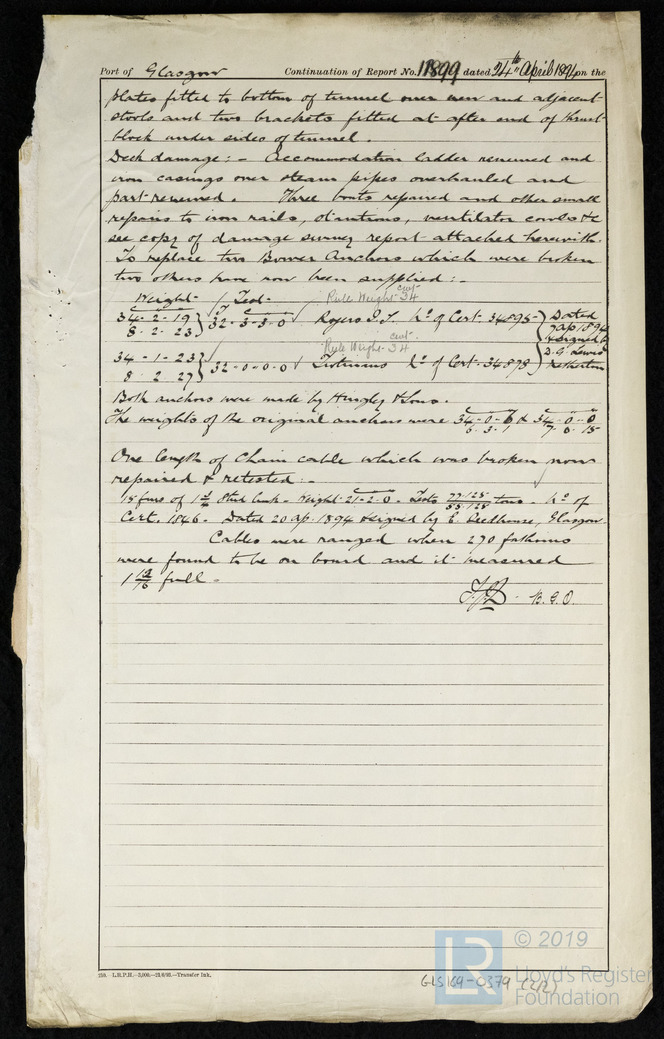 Port of Glasgow Continuation of Report No. 11899 dated 24th April 1894 on the
plates fitted to bottom of tunnel over new and adjacent
stools and two brackets fitted at after end of thrust
block under sides of tunnel.
Deck damage:- Accommodation ladder renewed and
iron casings over steam pipes overhauled and
part renewed. Three boats repaired and other small
repairs to iron rails, stantions, ventilator cowls &c
see copy of damage survey report attached herewith.
To replace two Bower Anchors which were broken
two others have now been supplied:-
Weight / Test Rule Weight 34 cwt
34-2-19
8-2-23 } 32-3-3-0 Rogers No of Cert. 34895
Dated
7 ap 1894
& signed by
D. G. Lewis
Netherton
Rule Weight 34 cwt
34-1-23
8-2-27 } 32-0-0-0 Trotmans No of Cert. 34878
Both anchors were made by Hingley & Sons.
The weights of the original anchors were 34-0-6 & 34-0-0
6-3-1 7-0-15
One length of Chain cable which was broken now
repaired & retested:-
15 fms of Stud link - Weight 21-2-0. Tests 77.125
55.125 tons. No of
Cert. 1846. Dated 20 ap. 1894 & signed by Glasgow.
Cables were ranged when 270 fathoms
were found to be on board and it measured
full.
B.G.O.
L.R.P.H.—5,000.—Transfer Ink.
GLS169-0379 (2/2)
LR
© 2019
Lloyd's Register
Foundation